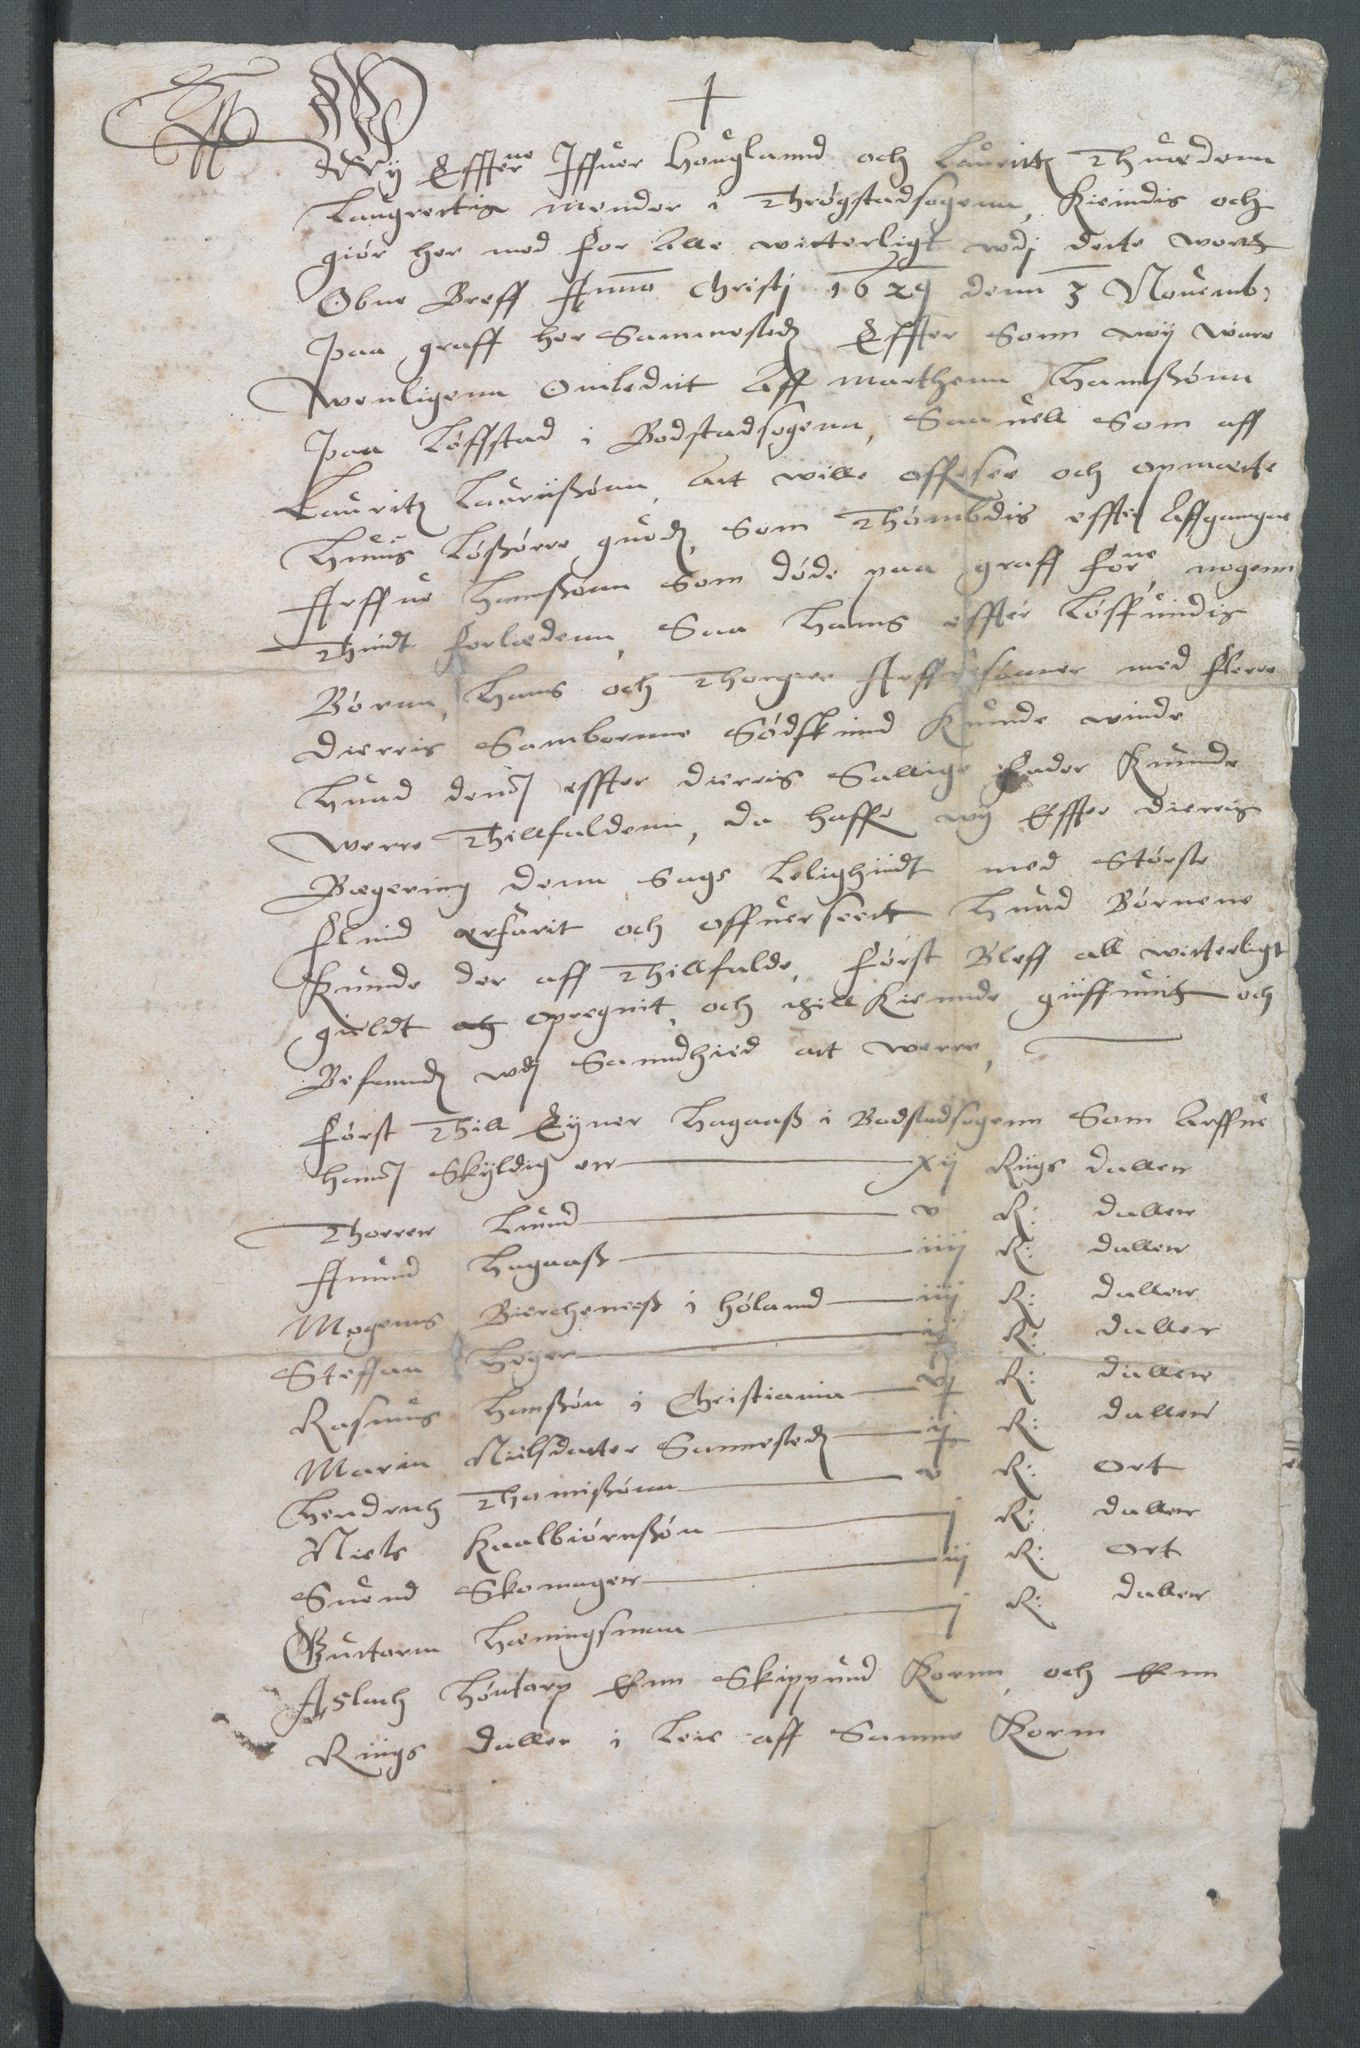 Wÿ Effter:ne Iffuer Houglannd och Lauritz Thuedenn
Laugrettis mender i Thrøgstadsogenn, Kiendis och
giør her med for Alle witterligt wdj dette wortt
Obne Breff Anno Christj 1629 denn 3 Nouemb:
paa graff her Sammesteds Effter Som wÿ ware
wenligenn Ombedut Aff Marthenn Hanßønn
paa Løffstad i Bodstadsogenn, Saauell Som aff
Lauritz Lauritßønn, Att wille offuersee och opmerke
Huis Løßørre guods, Som Thømbdis effter Affgangne
Arffue Hanßønn Som døde paa graff for:ne nogenn
Thiidt forledenn, Saa Hanns effter Løffuindis
Børnn, Hans och Thorger Arffuesønner med flerre
dierris Samborne Sødskind Kunde winde
Huad denom effter dierris Sallige fader Kunde
werre Thillfaldenn, da haffuer wÿ Effter dierris
Begering denn Sags Leiligheidt med Største
fliid erfarit och offuerseett Huad Børnene
Kunde der aff Thillfalde, Først Bleff all witterligt
gieldt opregnit, och thill Kiennde giiffuitt och
Befunds wdj Sanndhied att werre,
Først Thill Eÿner Hagaaß i Bodstadsogenn Som Arffue
hanom Skÿldig er xij Riigs daller
Thorrer Lund v R: daller
Amund Hagaaß iiij R: daller
Mogenns Biercheneeß i Høland iiij R: daller
Steffan Høger R: daller
Rasmus Hanßøn i Christiania R: daller
Marin Nielsdatter Sammesteds ij R: daller
Hendrich Thomißønn v R: Ort
Niels Kaalbiørnßøn j R: daller
Suend Skomager iij R: Ort
Guttorm Hemingsmøn j R: daller
Aslach Høntorp Enn Skippund Kornn, och Enn
Riigs daller i Leie aff Samme Kornn